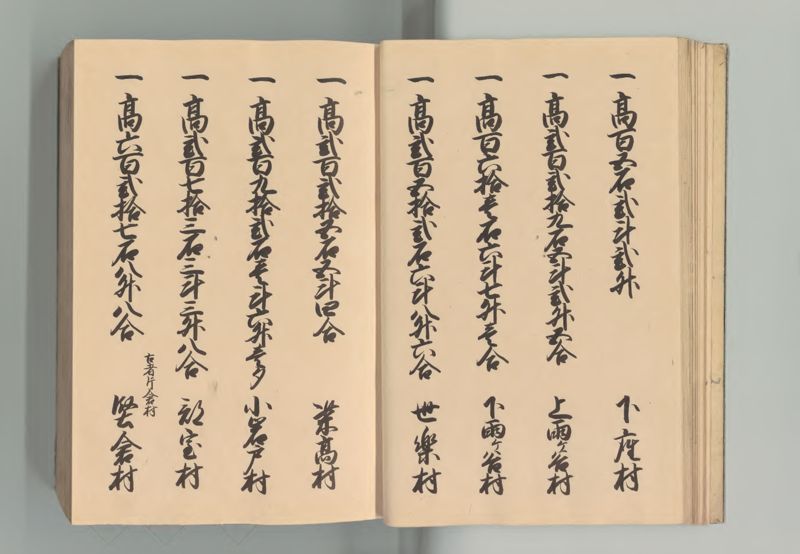 一高百五石弐斗弐升 下座村
一高弐百弐拾九石五斗弐升五合 上雨ケ谷村
一高百六拾壱石六斗七升壱合 下雨ケ谷村
一高弐百五拾弐石六斗八升六合 世楽村
一高弐百弐拾五石五斗四合 栗高村
一高弐百九拾弐石壱斗六升壱夕 小岩戸村
一高弐百七拾三石三斗三升八合 部室村
古者片倉村
一高六百弐拾七石八升八合 堅倉村